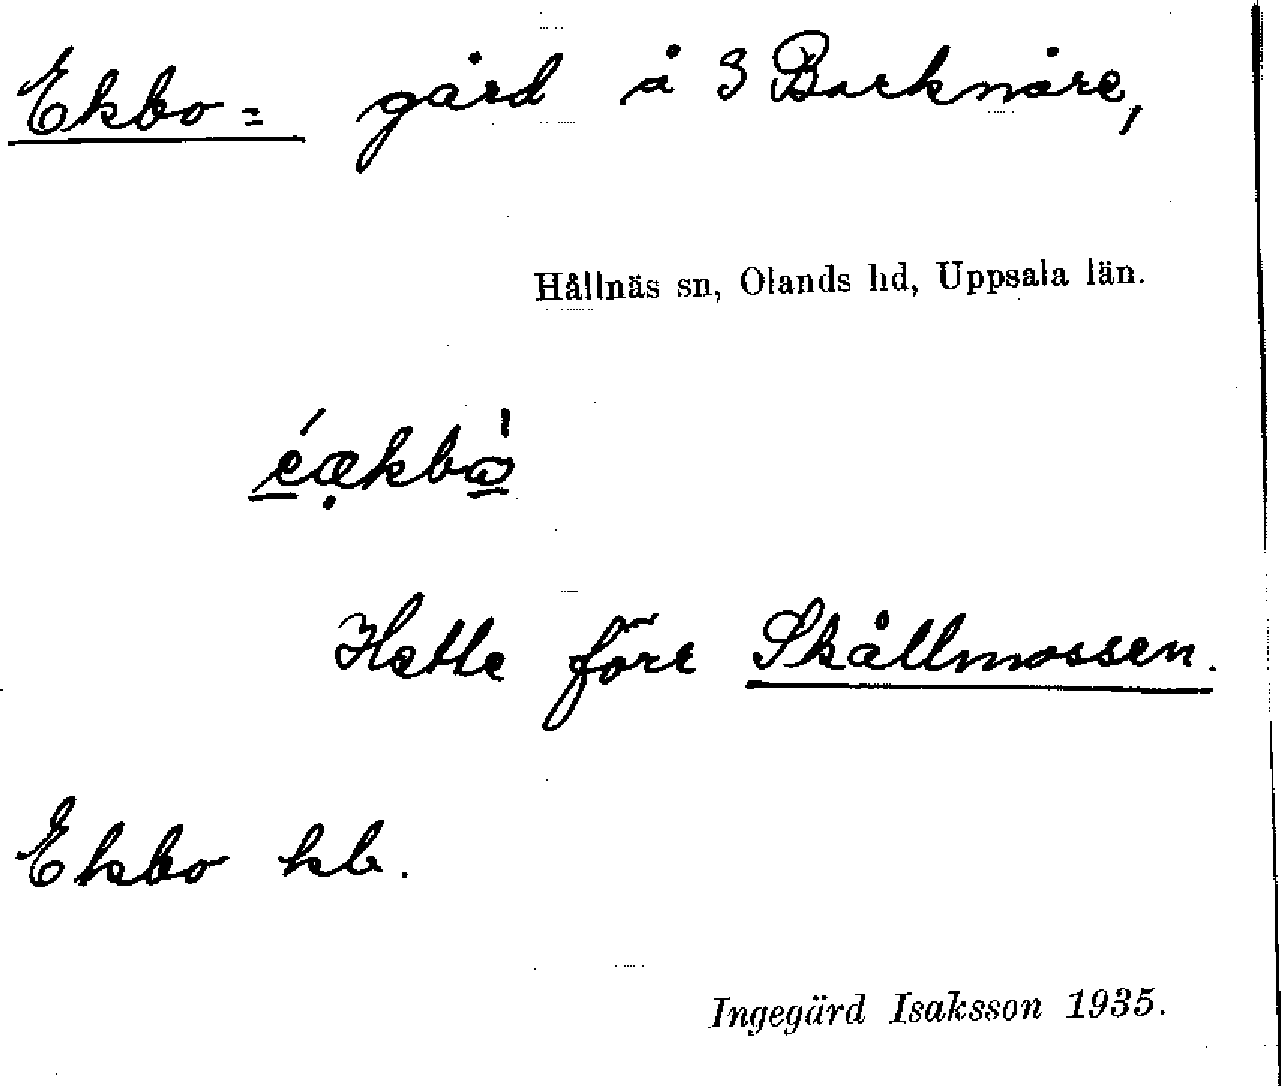 Ekbo = gård å 3 Barknåre,
Hållnäs sn, Olands hd, Uppsala län.
éækbò
Hette förr Skållmossen.
Ekbo kb.
Ingegärd Isaksson 1935.